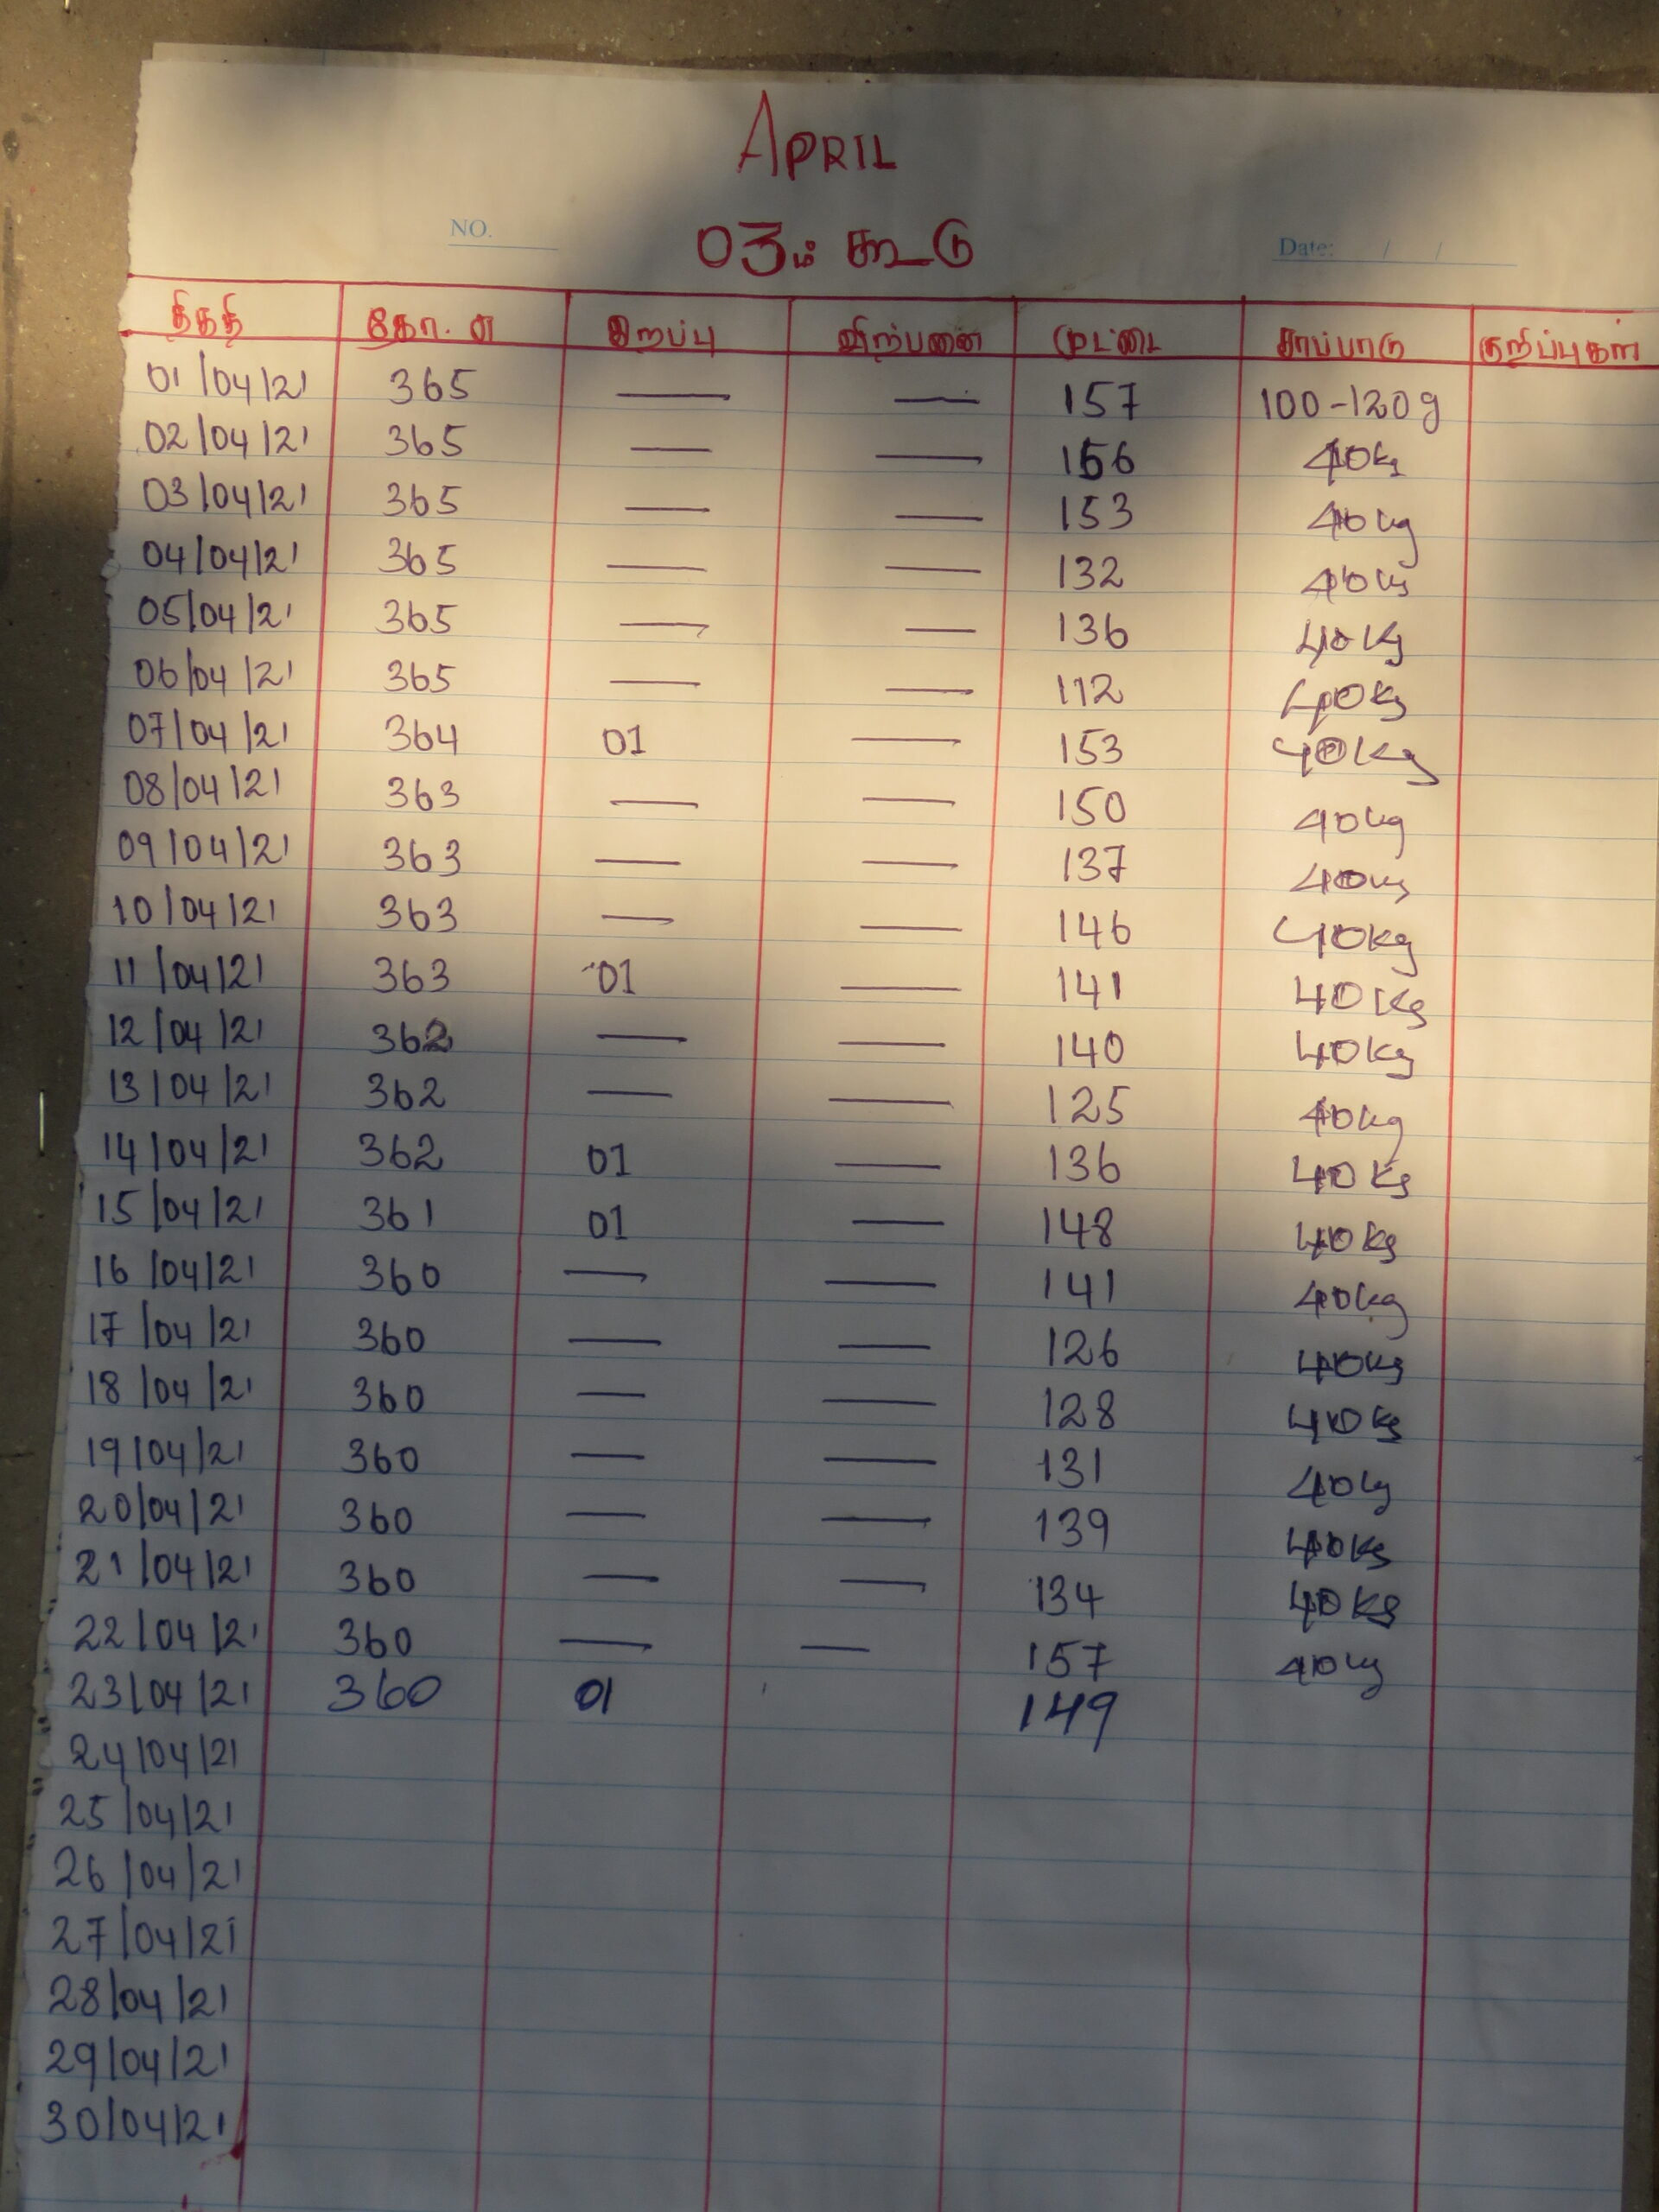 APRIL
NO.
03ம் கூடு
Date: / /
திகதி கோ.எ இறப்பு விற்பனை முட்டை சாப்பாடு குறிப்புகள்
01/04/21 365 — — 157 100-120g
02/04/21 365 — — 156 40kg
03/04/21 365 — — 153 40kg
04/04/21 365 — — 132 40kg
05/04/21 365 — — 136 40kg
06/04/21 365 — — 112 40kg
07/04/21 364 01 — 153 40kg
08/04/21 363 — — 150 40kg
09/04/21 363 — — 137 40kg
10/04/21 363 — — 146 40kg
11/04/21 363 01 — 141 40kg
12/04/21 362 — — 140 40kg
13/04/21 362 — — 125 40kg
14/04/21 362 01 — 136 40kg
15/04/21 361 01 — 148 40kg
16/04/21 360 — — 141 40kg
17/04/21 360 — — 126 40kg
18/04/21 360 — — 128 40kg
19/04/21 360 — — 131 40kg
20/04/21 360 — — 139 40kg
21/04/21 360 — — 134 40kg
22/04/21 360 — — 157 40kg
23/04/21 360 01 149
24/04/21
25/04/21
26/04/21
27/04/21
28/04/21
29/04/21
30/04/21